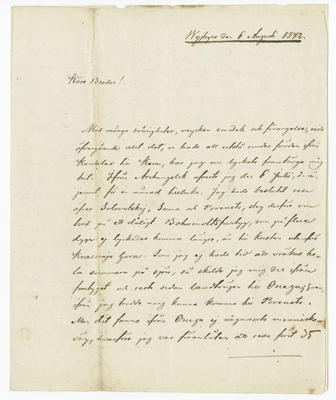 Wytegra den 6 Augusti 1842.
Käre Broder!
Med många svårigheter, mycken möda och förargelse, vida
öfvergående allt det, vi hade att utstå under färden ifrån
Kandalax till Kem, har jag nu lyckats framtränga
hit. Ifrån Archangelsk afreste jag den 6 Julii, d. ä.
jemnt för en månad tillbaka. Jag hade beslutit resa
öfver Solovetskoj, Suma och Povenets, steg derföre om
bord på ett dåligt fartyg, som på flera
dygn ej lyckades kunna längre, än till kusten utanför
Krasnaja Gora. Som jag ej hade tid att vräkas hela
sommaren på sjön, så skilde jag mig der ifrån
fartyget och reste sedan landtvägen till Onega,
ifrån jag trodde mig kunna komma till Povenets.
Men det fanns ifrån Onega ej någonsts
väg, hvarföre jag var föranlåten att resa först 35